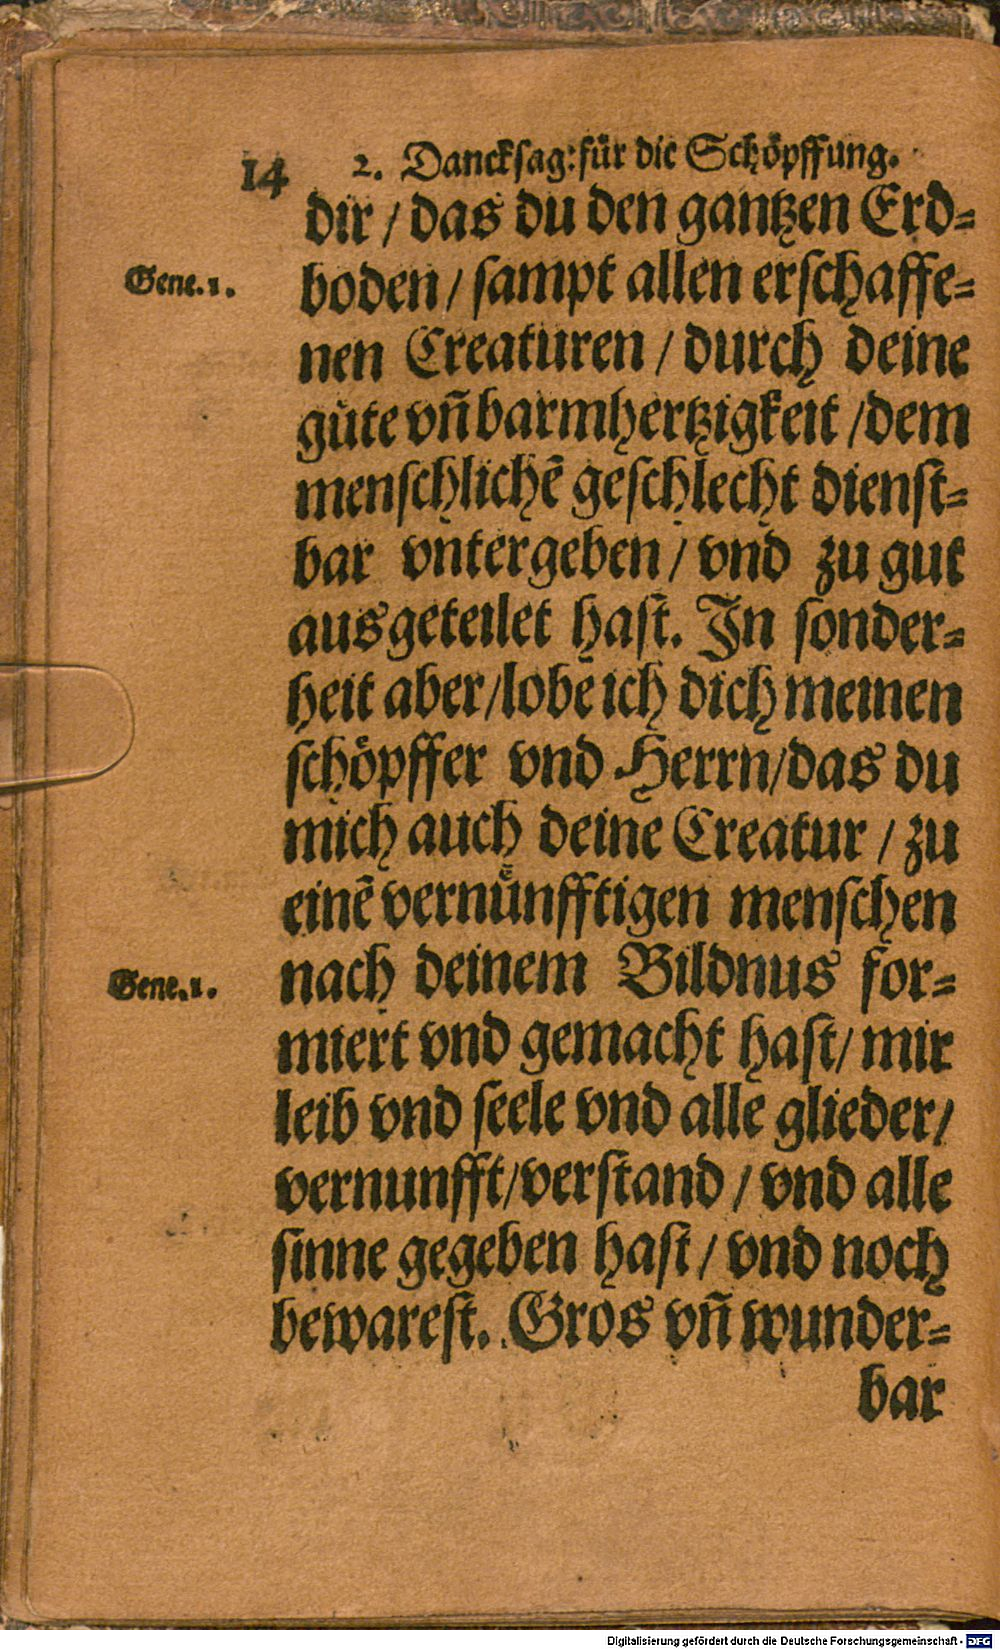 14 2. Dancksag: für die Schöpffung.
dir / das du den gantzen Erd⸗
Gene. 1.
boden / sampt allen erschaffe⸗
nen Creaturen / durch deine
güte vñ barmhertzigkeit / dem
menschlichẽ geschlecht dienst⸗
bar vntergeben / vnd zu gut
ausgeteilet hast. In sonder⸗
heit aber / lobe ich dich meinen
schöpffer vnd Herrn / das du
mich auch deine Creatur / zu
einẽ vernünfftigen menschen
Gene. 1.
nach deinem Bildnus for⸗
miert vnd gemacht hast / mir
leib vnd seele vnd alle glieder /
vernunfft / verstand / vnd alle
sinne gegeben hast / vnd noch
bewarest. Gros vñ wunder⸗
bar
Digitalisierung gefördert durch die Deutsche Forschungsgemeinschaft - DFG